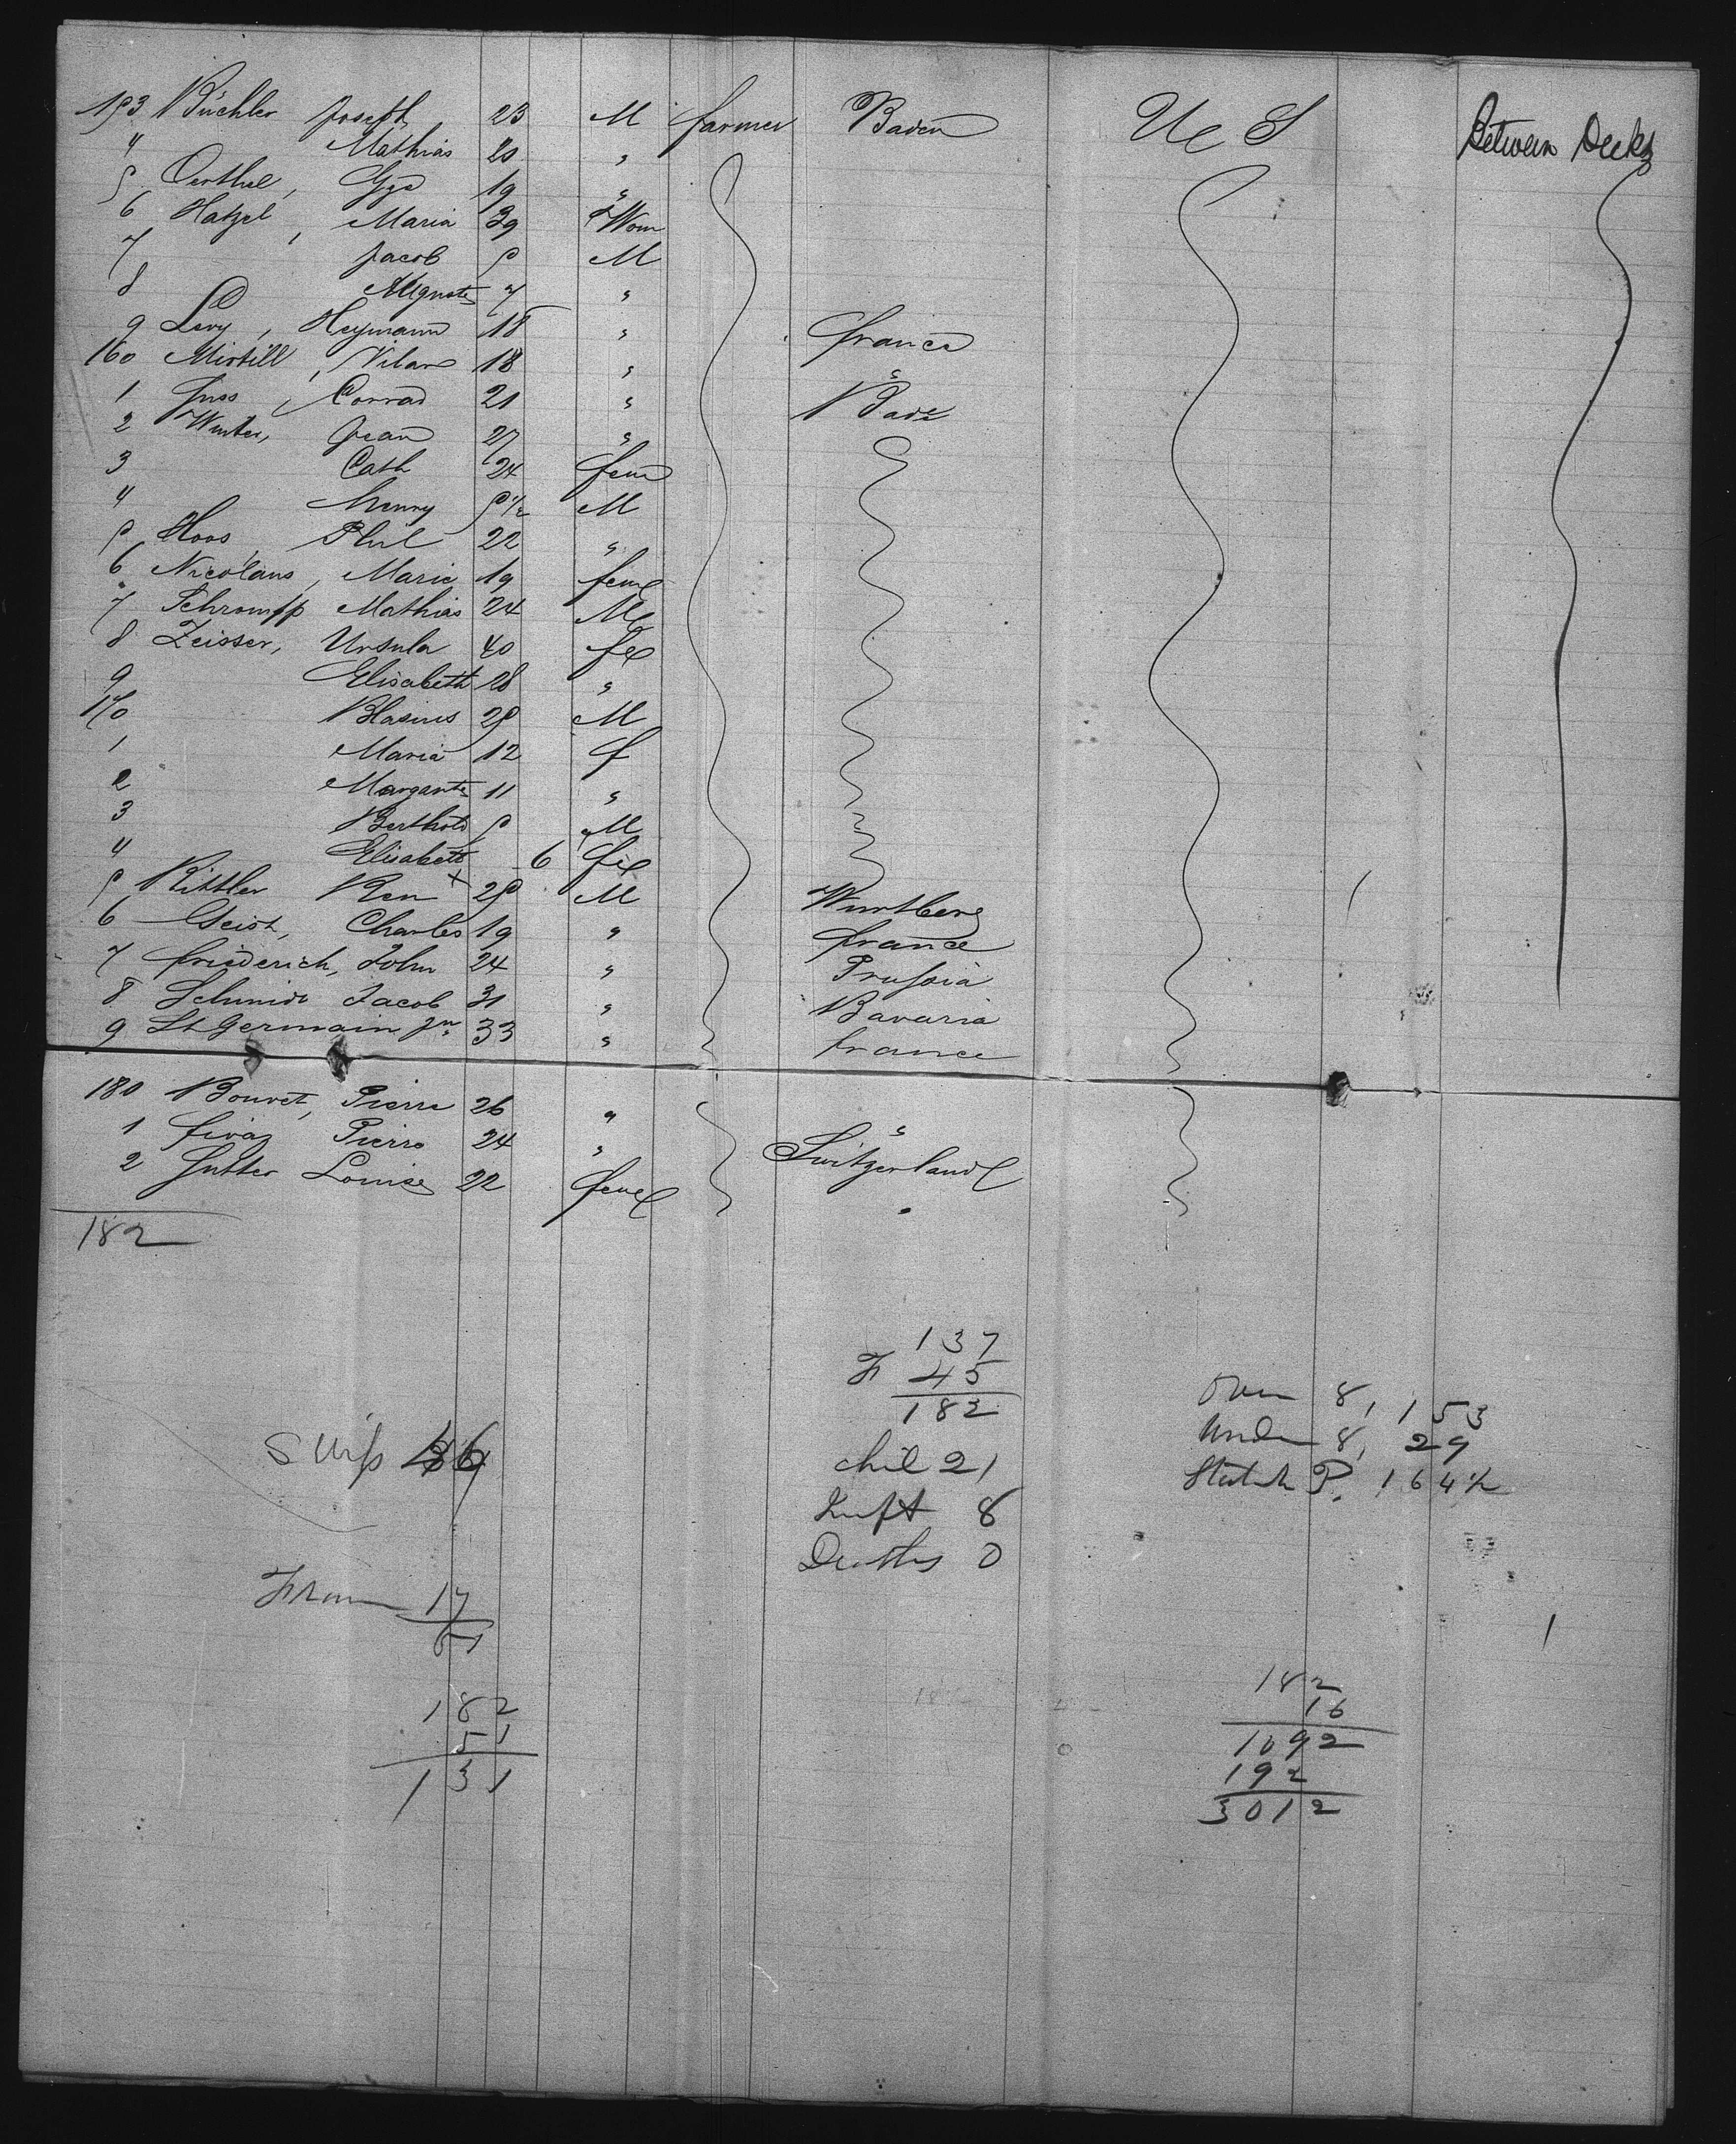 153 Büchler Joseph 23 M farmer Baden U S Between Decks
4 Mathias 20 "
5 Oerthel, Ggd 19 "
6 Hatzel, Maria 39 Wom
7 Jacob 5 M
8 Auguste 7 "
9 Levy, Heymann 18 " france
160 Mirtill, Vilar 18 " "
1 Juss, Conrad 21 " Bade
2 Winter, Jean 27 "
3 Cath 24 fem
4 henry 5 1/2 M
5 Hoos, Phil 22 "
6 Nicolaus, Marie 19 fem
7 Schrempp Mathias 24 M
8 Zeisser, Ursula 40 fe
9 Elisabeth 28 "
170 Blasius 25 M
1 Maria 12 f
2 Margarete 11 "
3 Berthold 5 M
4 Elisabeth 6 fe
5 Rittler Ken x 25 M Wurtberg
6 Geist, Charles 19 " france
7 friederich, John 24 " Prussia
8 Schmidt Jacob 31 " Bavaria
9 St Germain Jn 33 " france
180 Bouvet, Pierre 26 " "
1 fivaz Pierre 24 " Switzerland
2 Sutter Louise 22 fem "
182
137
F 45
182
Over 8, 153
Under 8, 29
P. 164 1/2
Swiss
chil 21
Inft 8
Deaths 0
Fran 17
51
182
51
131
182
16
1092
192
3012